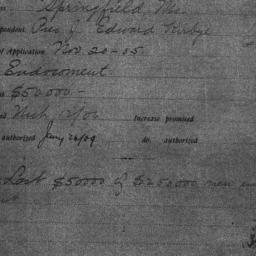 Springfield, Mo.
Pres J. Edward Kirbye
of Application Nov. 20-05
Endowment
$50000-
Increase promised
authorized Jany 26/09 do. authorized
Last $50000 of $250000 new